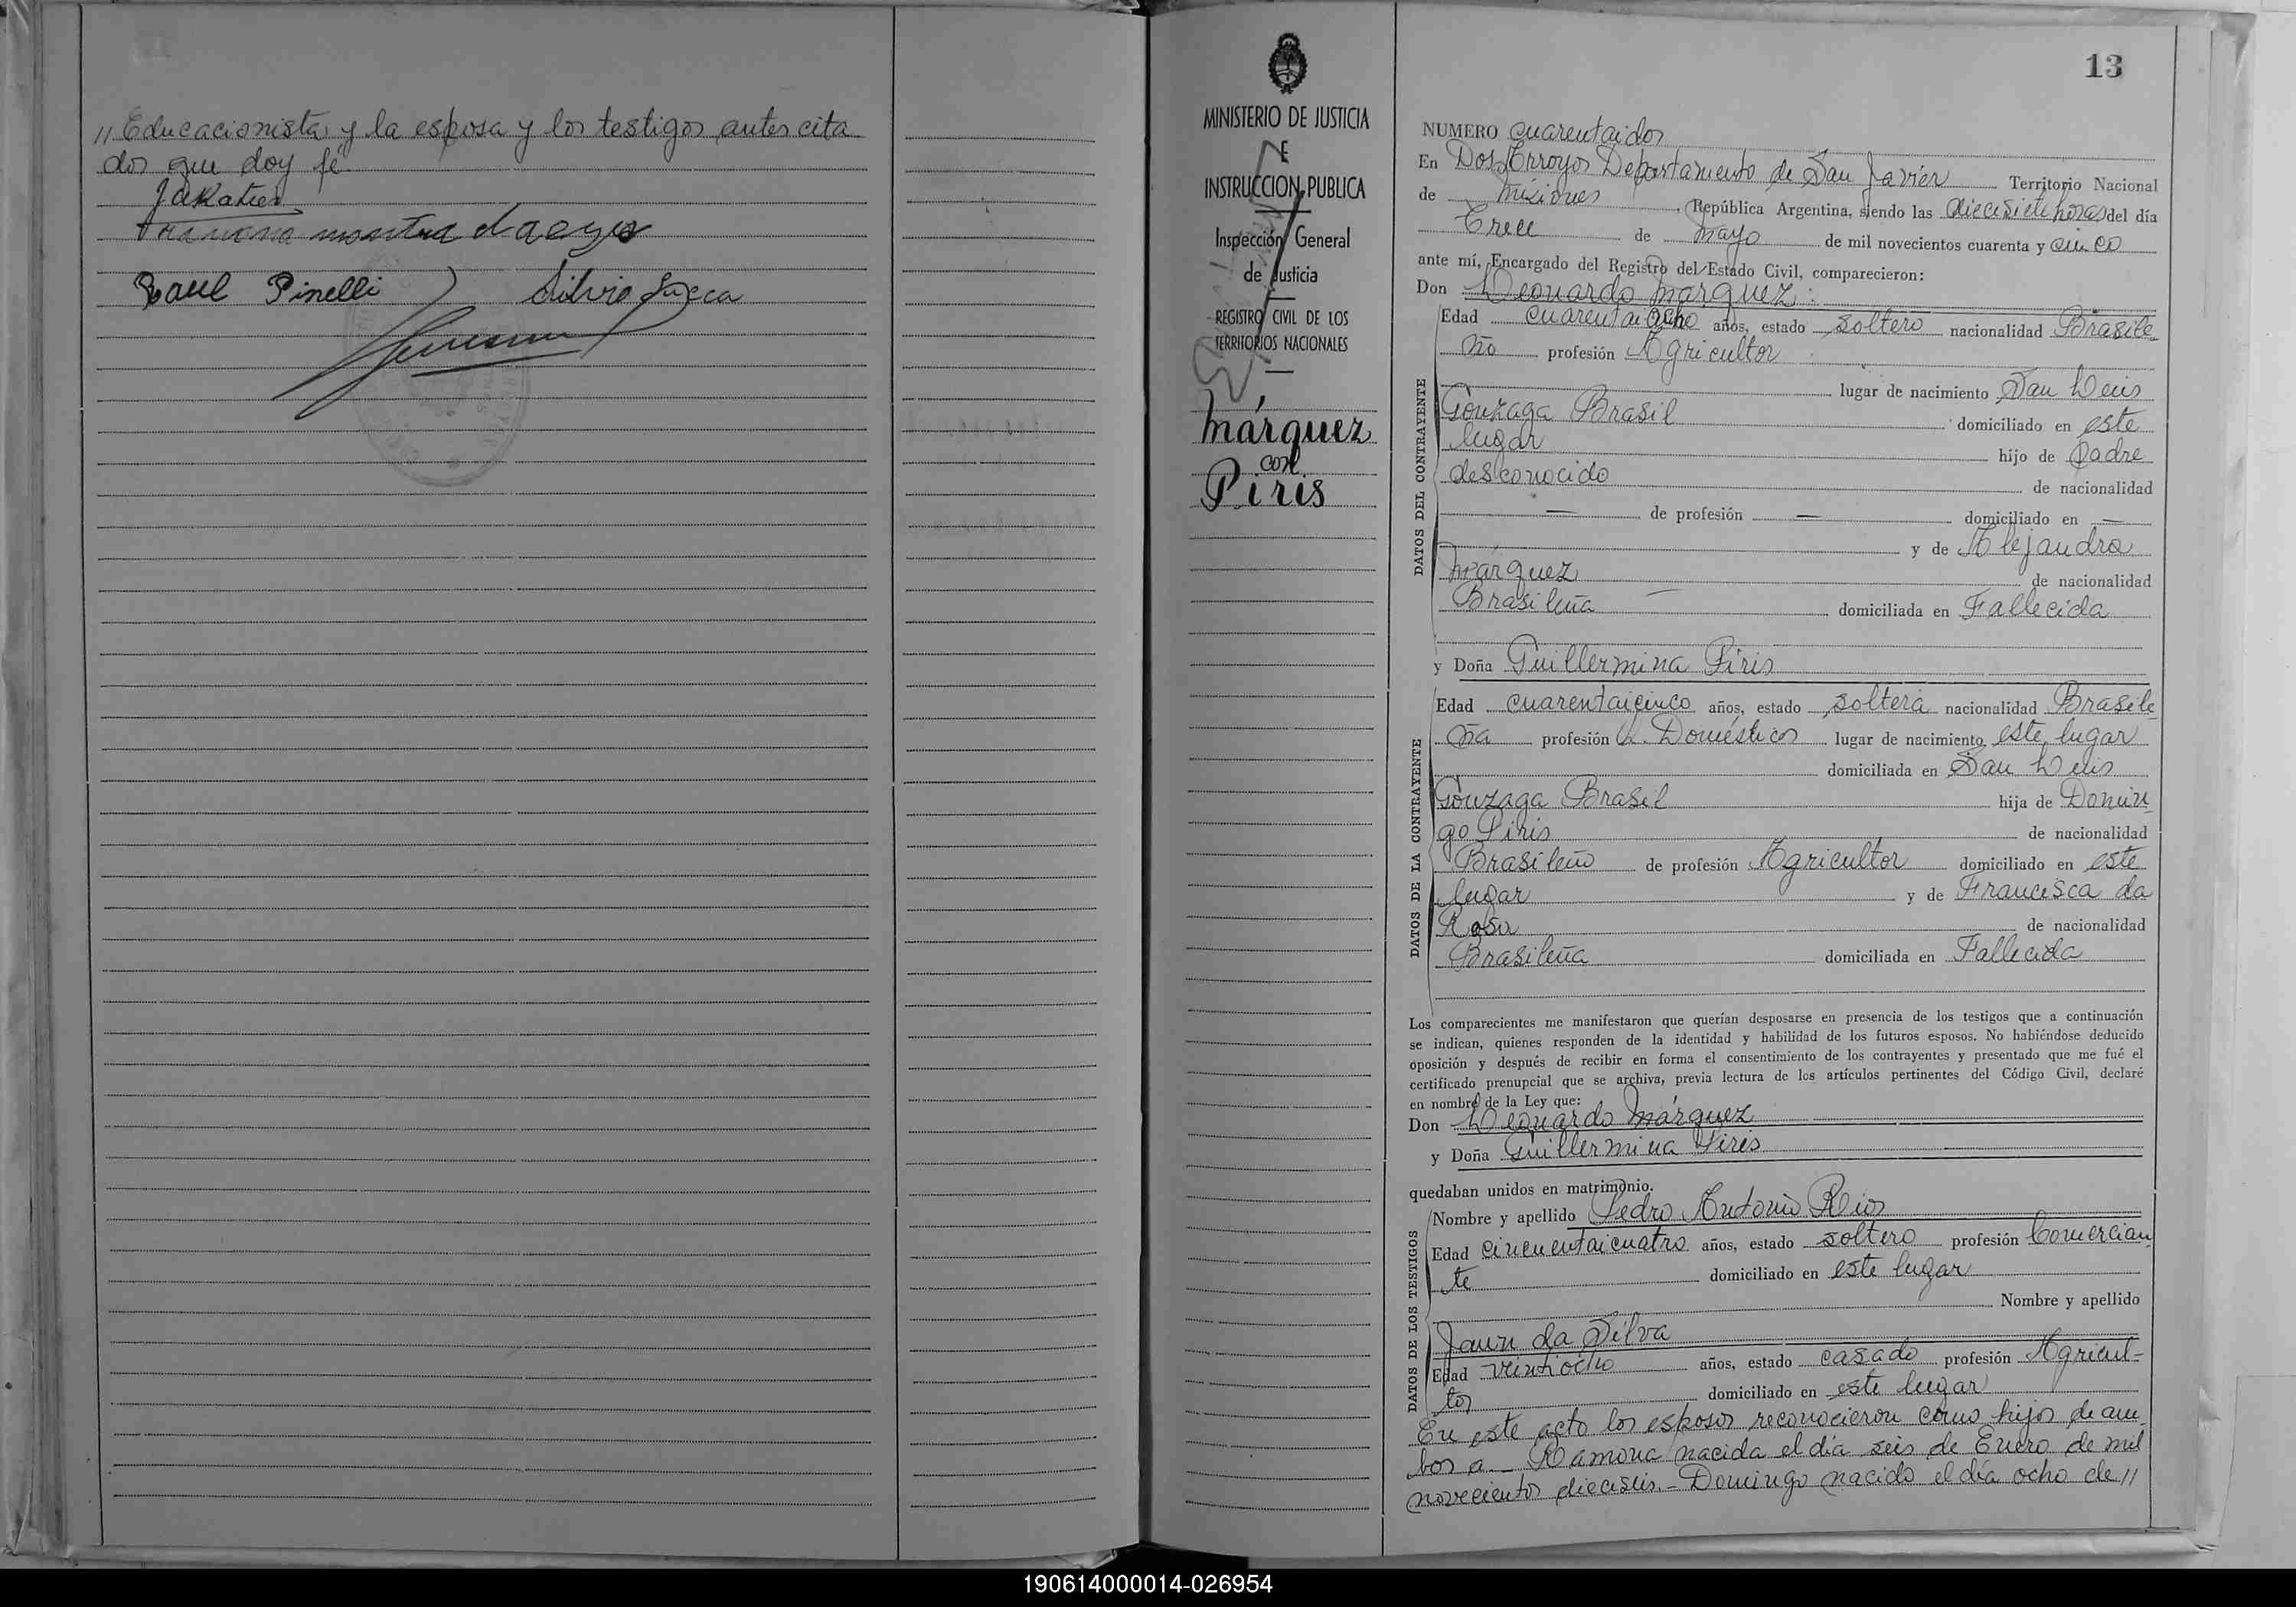 // Educacionista y la esposa y los testigos antes cita
dos que doy fé.
Raul Pinelli
Silvio
MINISTERIO DE JUSTICIA
E
INSTRUCCION PUBLICA
Inspección General
de Justicia
REGISTRO CIVIL DE LOS
TERRITORIOS NACIONALES
Márquez
con
Piris
13
NUMERO cuarentaidos
En Dos Arroyos Departamento de San Javier Territorio Nacional
de Misiones República Argentina, siendo las diecisiete horas del día
Trece de Mayo de mil novecientos cuarenta y cinco
ante mí, Encargado del Registro del Estado Civil, comparecieron:
Don Leonardo Márquez:
DATOS DEL CONTRAYENTE
Edad cuarentaiocho años, estado soltero nacionalidad Brasile
ño profesión Agricultor
lugar de nacimiento San Luis
Gonzaga Brasil domiciliado en este
lugar hijo de Padre
desconocido de nacionalidad
— de profesión — domiciliado en —
y de Alejandra
Márquez de nacionalidad
Brasileña domiciliada en Fallecida
y Doña Guillermina Piris
DATOS DE LA CONTRAYENTE
Edad cuarentaicinco años, estado soltera nacionalidad Brasile
ña profesión Q. Domésticos lugar de nacimiento este lugar
domiciliada en San Luis
Gonzaga Brasil hija de Domin
go Piris de nacionalidad
Brasileño de profesión Agricultor domiciliado en este
lugar y de Francisca da
Rosa de nacionalidad
Brasileña domiciliada en Fallecida
Los comparecientes me manifestaron que querían desposarse en presencia de los testigos que a continuación
se indican, quienes responden de la identidad y habilidad de los futuros esposos. No habiéndose deducido
oposición y después de recibir en forma el consentimiento de los contrayentes y presentado que me fué el
certificado prenupcial que se archiva, previa lectura de los artículos pertinentes del Código Civil, declaré
en nombre de la Ley que:
Don Leonardo Márquez
y Doña Guillermina Piris
quedaban unidos en matrimonio.
DATOS DE LOS TESTIGOS
Nombre y apellido Pedro Antonio Rios
Edad cincuentaicuatro años, estado soltero profesión Comercian
te domiciliado en este lugar
Nombre y apellido
Jaun da Silva
Edad veintiocho años, estado casado profesión Agricul-
tor domiciliado en este lugar
En este acto los esposos reconocieron como hijos de am
bos a.- Ramona nacida el día seis de Enero de mil
novecientos dieciseis.- Domingo nacido el día ocho de //
190614000014-026954